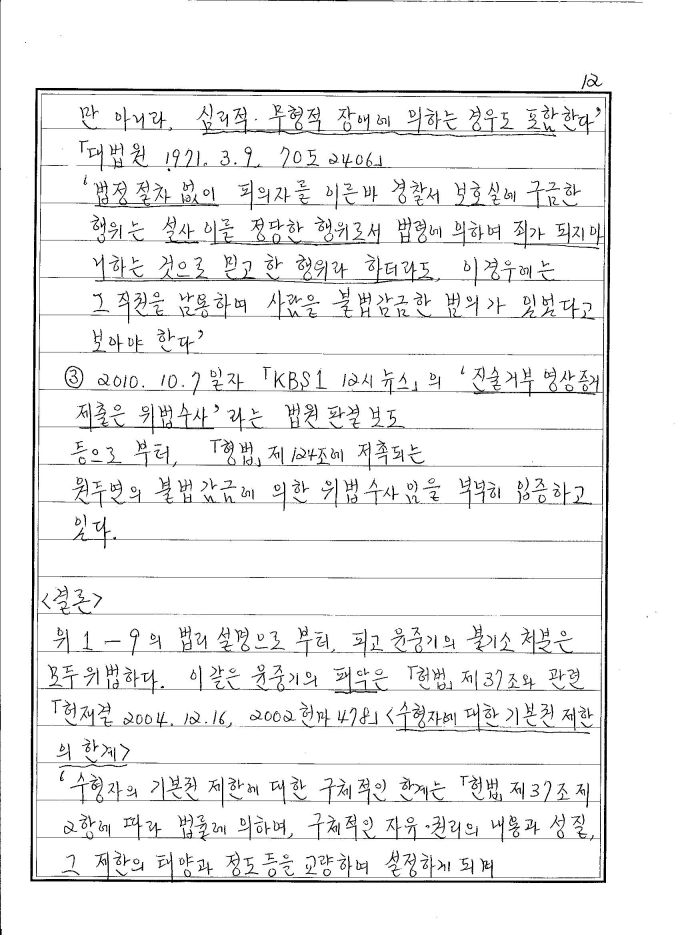 12
만 아니라, 심리적·무형적 장애에 의하는 경우도 포함한다'
「대법원 1971. 3. 9. 70도2406」
'법정 절차 없이 피의자를 이른바 경찰서 보호실에 구금한
행위는 설사 이를 정당한 행위로서 법령에 의하여 죄가 되지아
니하는 것으로 믿고 한 행위라 하더라도, 이 경우에는
그 직권을 남용하여 사람을 불법감금한 범의가 있었다고
보아야 한다'
③ 2010. 10. 7일자 「KBS1 12시 뉴스」의 '진술거부 영상증거
제출은 위법수사'라는 법원 판결 보도
등으로 부터, 「형법」제124조에 저촉되는
원두연의 불법감금에 의한 위법수사 임을 부부히 입증하고
있다.
<결론>
위 1-9의 법리설명으로 부터, 피고 윤중기의 불기소 처분은
모두위법하다. 이 같은 윤중기의 패악은 「헌법」제37조와 관련
「헌재결 2004. 12. 16, 2002헌마478」<수형자에 대한 기본권 제한
의 한계>
'수형자의 기본권 제한에 대한 구체적인 한계는 「헌법」제37조 제
2항에 따라 법률에 의하며, 구체적인 자유·권리의 내용과 성질,
그 제한의 태양과 정도 등을 교량하여 설정하게 되며